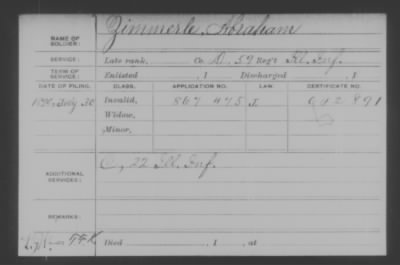 NAME OF SOLDIER: Zimmerle, Abraham
SERVICE: Late rank, Co. D, 59 Reg't Ill. Inf.
TERM OF SERVICE: Enlisted , 1 Discharged , 1
DATE OF FILING. CLASS. APPLICATION NO. LAW CERTIFICATE NO.
1890, July 30 Invalid, 867 475 J. 642 891
Widow,
Minor,
ADDITIONAL SERVICES: C, 22 Ill. Inf.
REMARKS:
Died , 1 , at